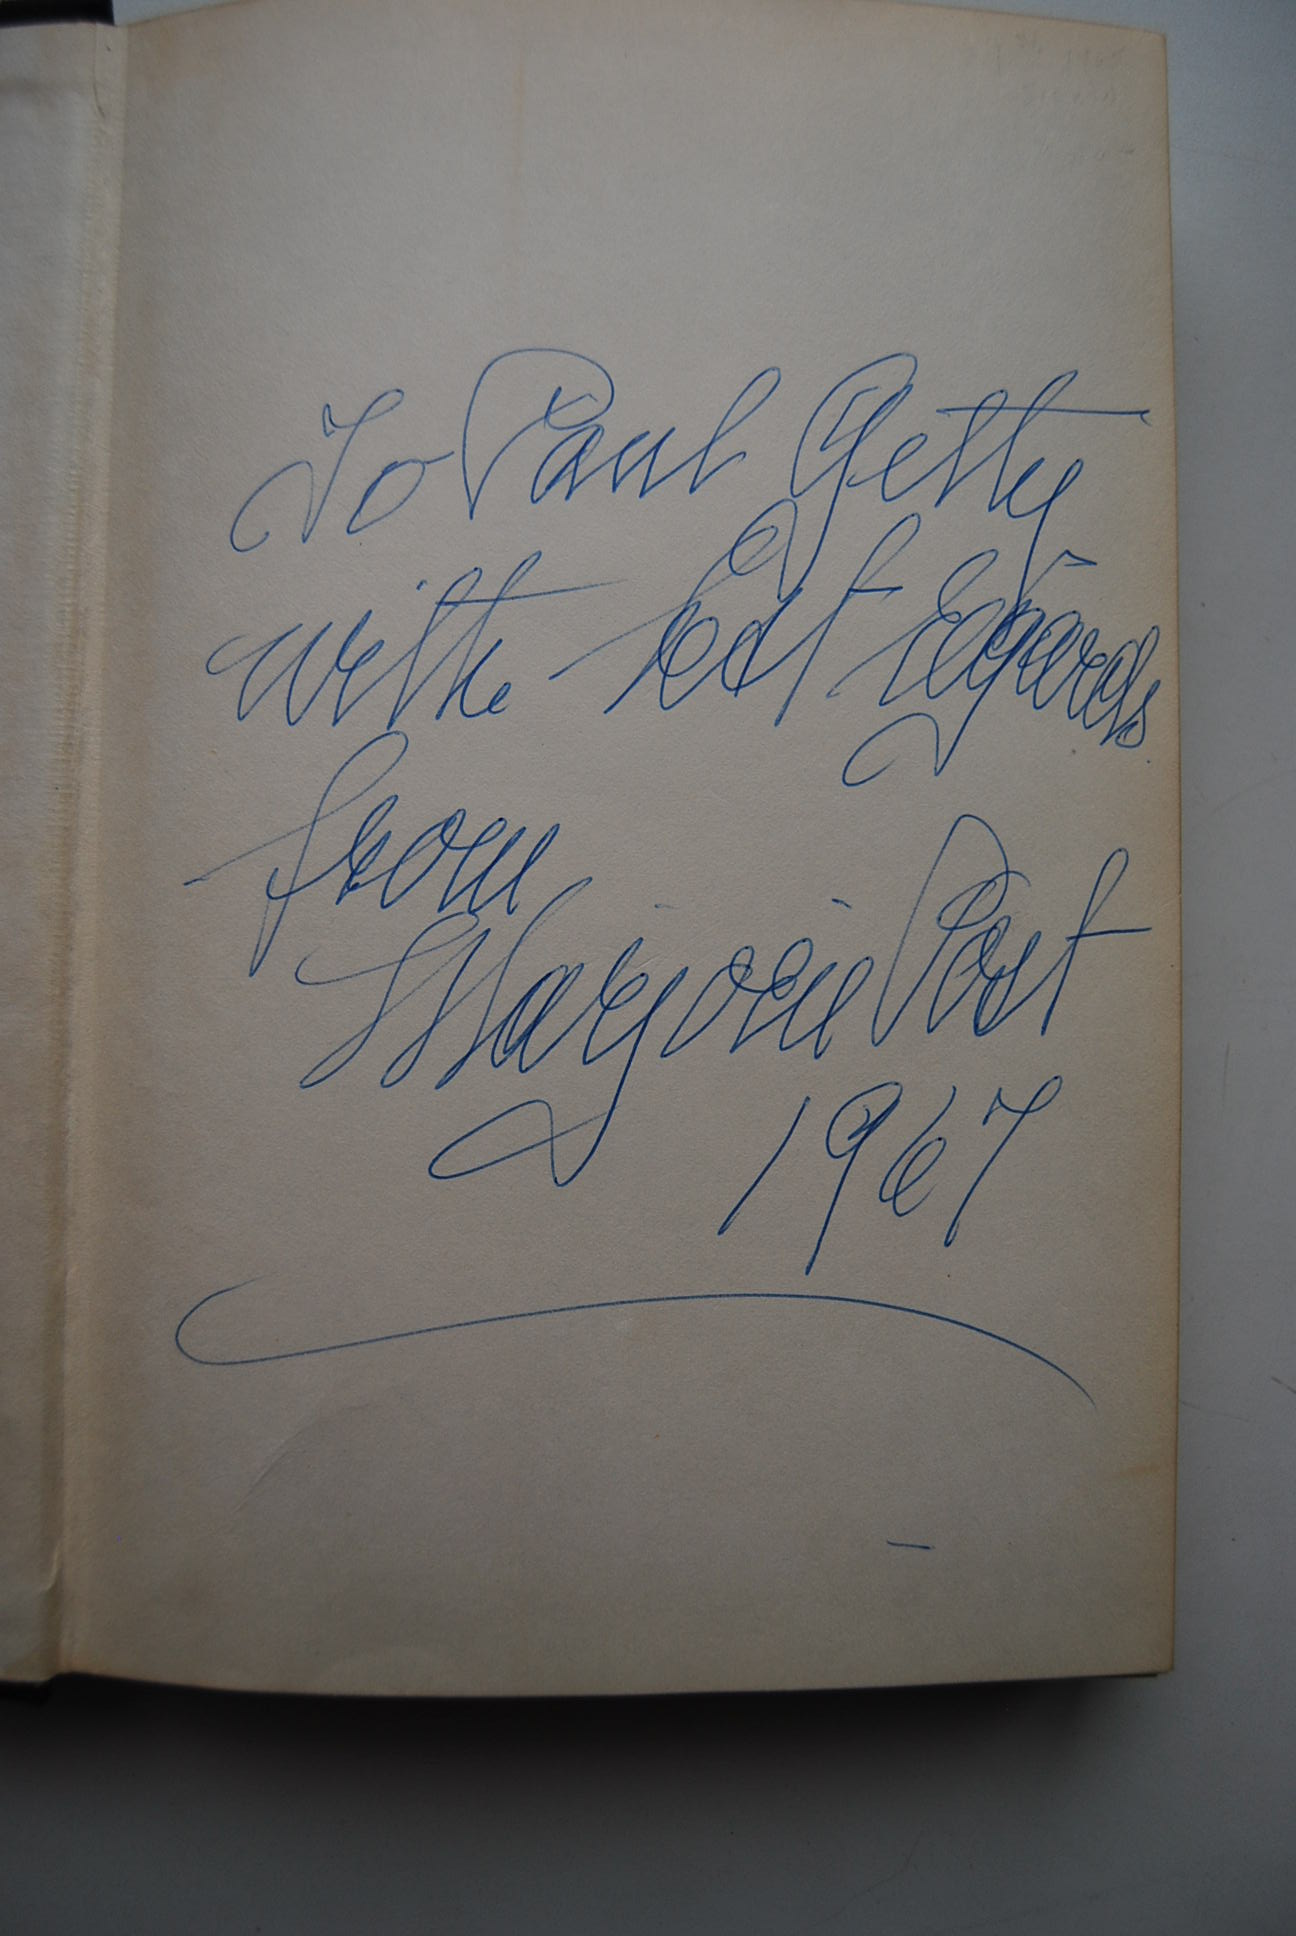 To Paul Getty
with best regards
from
Marjorie Post
1967